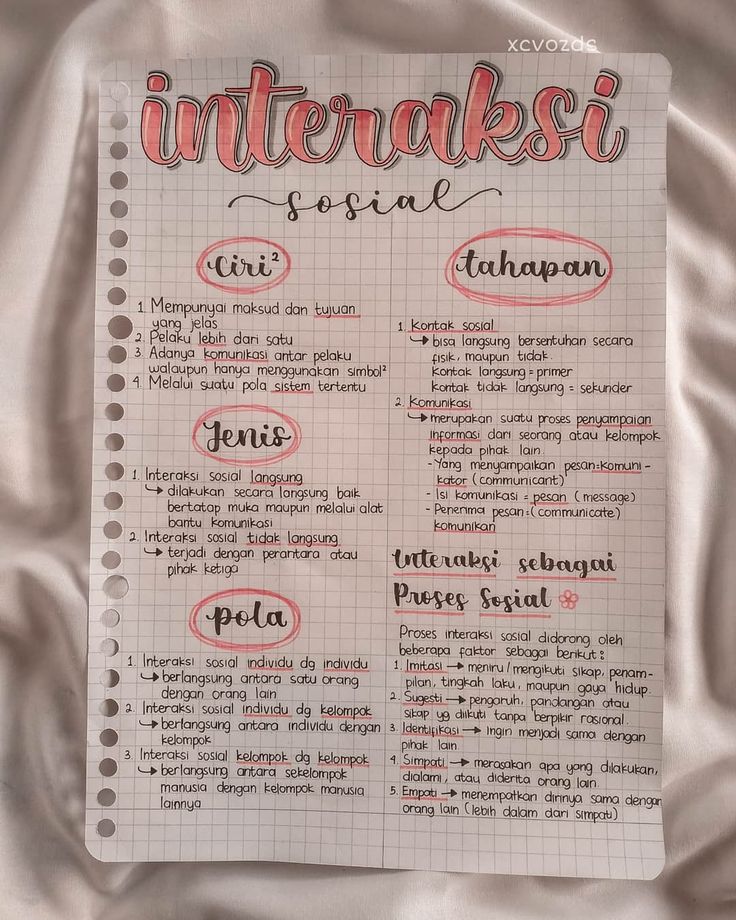 xcvozds
interaksi
sosial
ciri²
1. Mempunyai maksud dan tujuan
yang jelas
2. Pelaku lebih dari satu
3. Adanya komunikasi antar pelaku
walaupun hanya menggunakan simbol²
4. Melalui suatu pola sistem tertentu
Jenis
1. Interaksi sosial langsung
↳ dilakukan secara langsung baik
bertatap muka maupun melalui alat
bantu komunikasi
2. Interaksi sosial tidak langsung
↳ terjadi dengan perantara atau
pihak ketiga
pola
1. Interaksi sosial individu dg individu
↳ berlangsung antara satu orang
dengan orang lain
2. Interaksi sosial individu dg kelompok
↳ berlangsung antara individu dengan
kelompok
3. Interaksi sosial kelompok dg kelompok
↳ berlangsung antara sekelompok
manusia dengan kelompok manusia
lainnya
tahapan
1. Kontak sosial
↳ bisa langsung bersentuhan secara
fisik, maupun tidak.
Kontak langsung = primer
Kontak tidak langsung = sekunder
2. Komunikasi
↳ merupakan suatu proses penyampaian
informasi dari seorang atau kelompok
kepada pihak lain.
- Yang menyampaikan pesan=komuni-
kator (communicant)
- Isi komunikasi = pesan (message)
- Penerima pesan=(communicate)
komunikan
Interaksi sebagai
Proses Sosial
Proses interaksi sosial didorong oleh
beberapa faktor sebagai berikut :
1. Imitasi → meniru/mengikuti sikap, penam-
pilan, tingkah laku, maupun gaya hidup.
2. Sugesti → pengaruh, pandangan atau
sikap yg diikuti tanpa berpikir rasional.
3. Identifikasi → Ingin menjadi sama dengan
pihak lain.
4. Simpati → merasakan apa yang dilakukan,
dialami, atau diderita orang lain.
5. Empati → menempatkan dirinya sama dengan
orang lain (lebih dalam dari simpati)